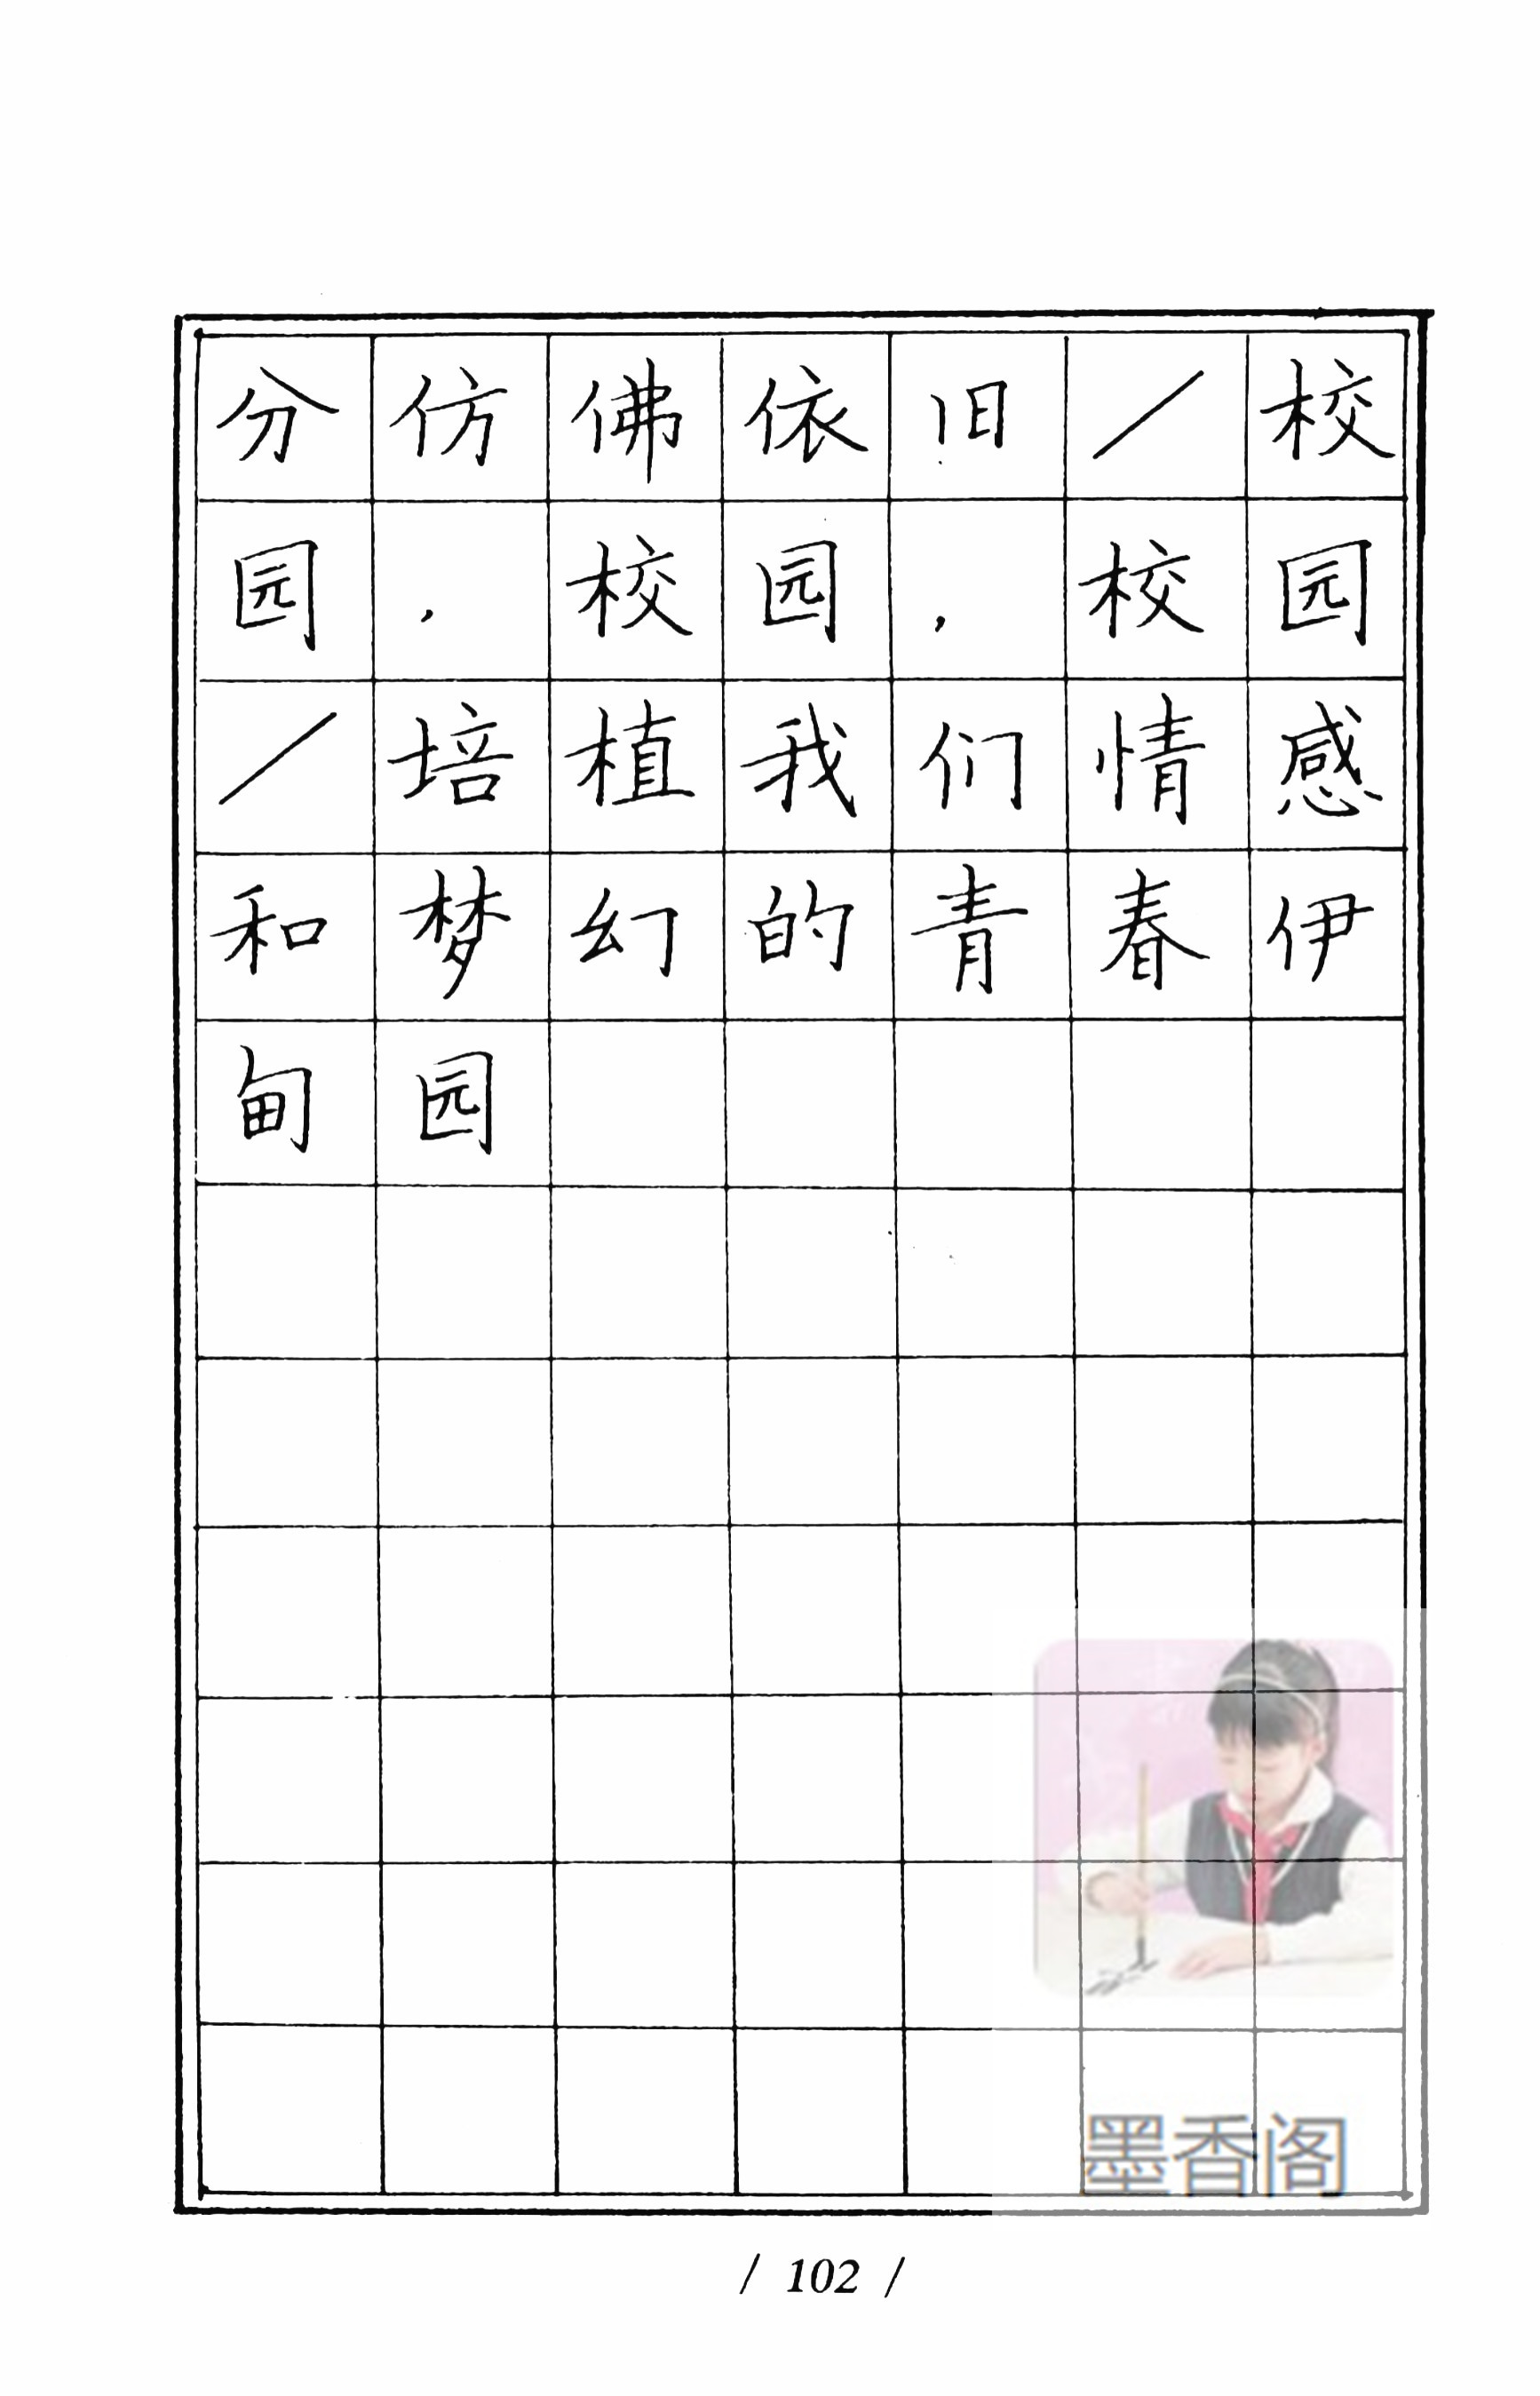 分仿佛依旧／校
园，校园，校园
／培植我们情感
和梦幻的青春伊
甸园
墨香阁
/ 102 /